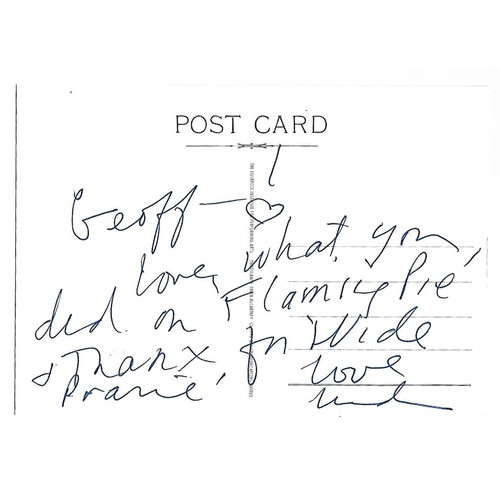 POST CARD
Geoff - ♡
loves what you
did on 'Flaming Pie'
& Thanx for 'Wide
Prarie'
love